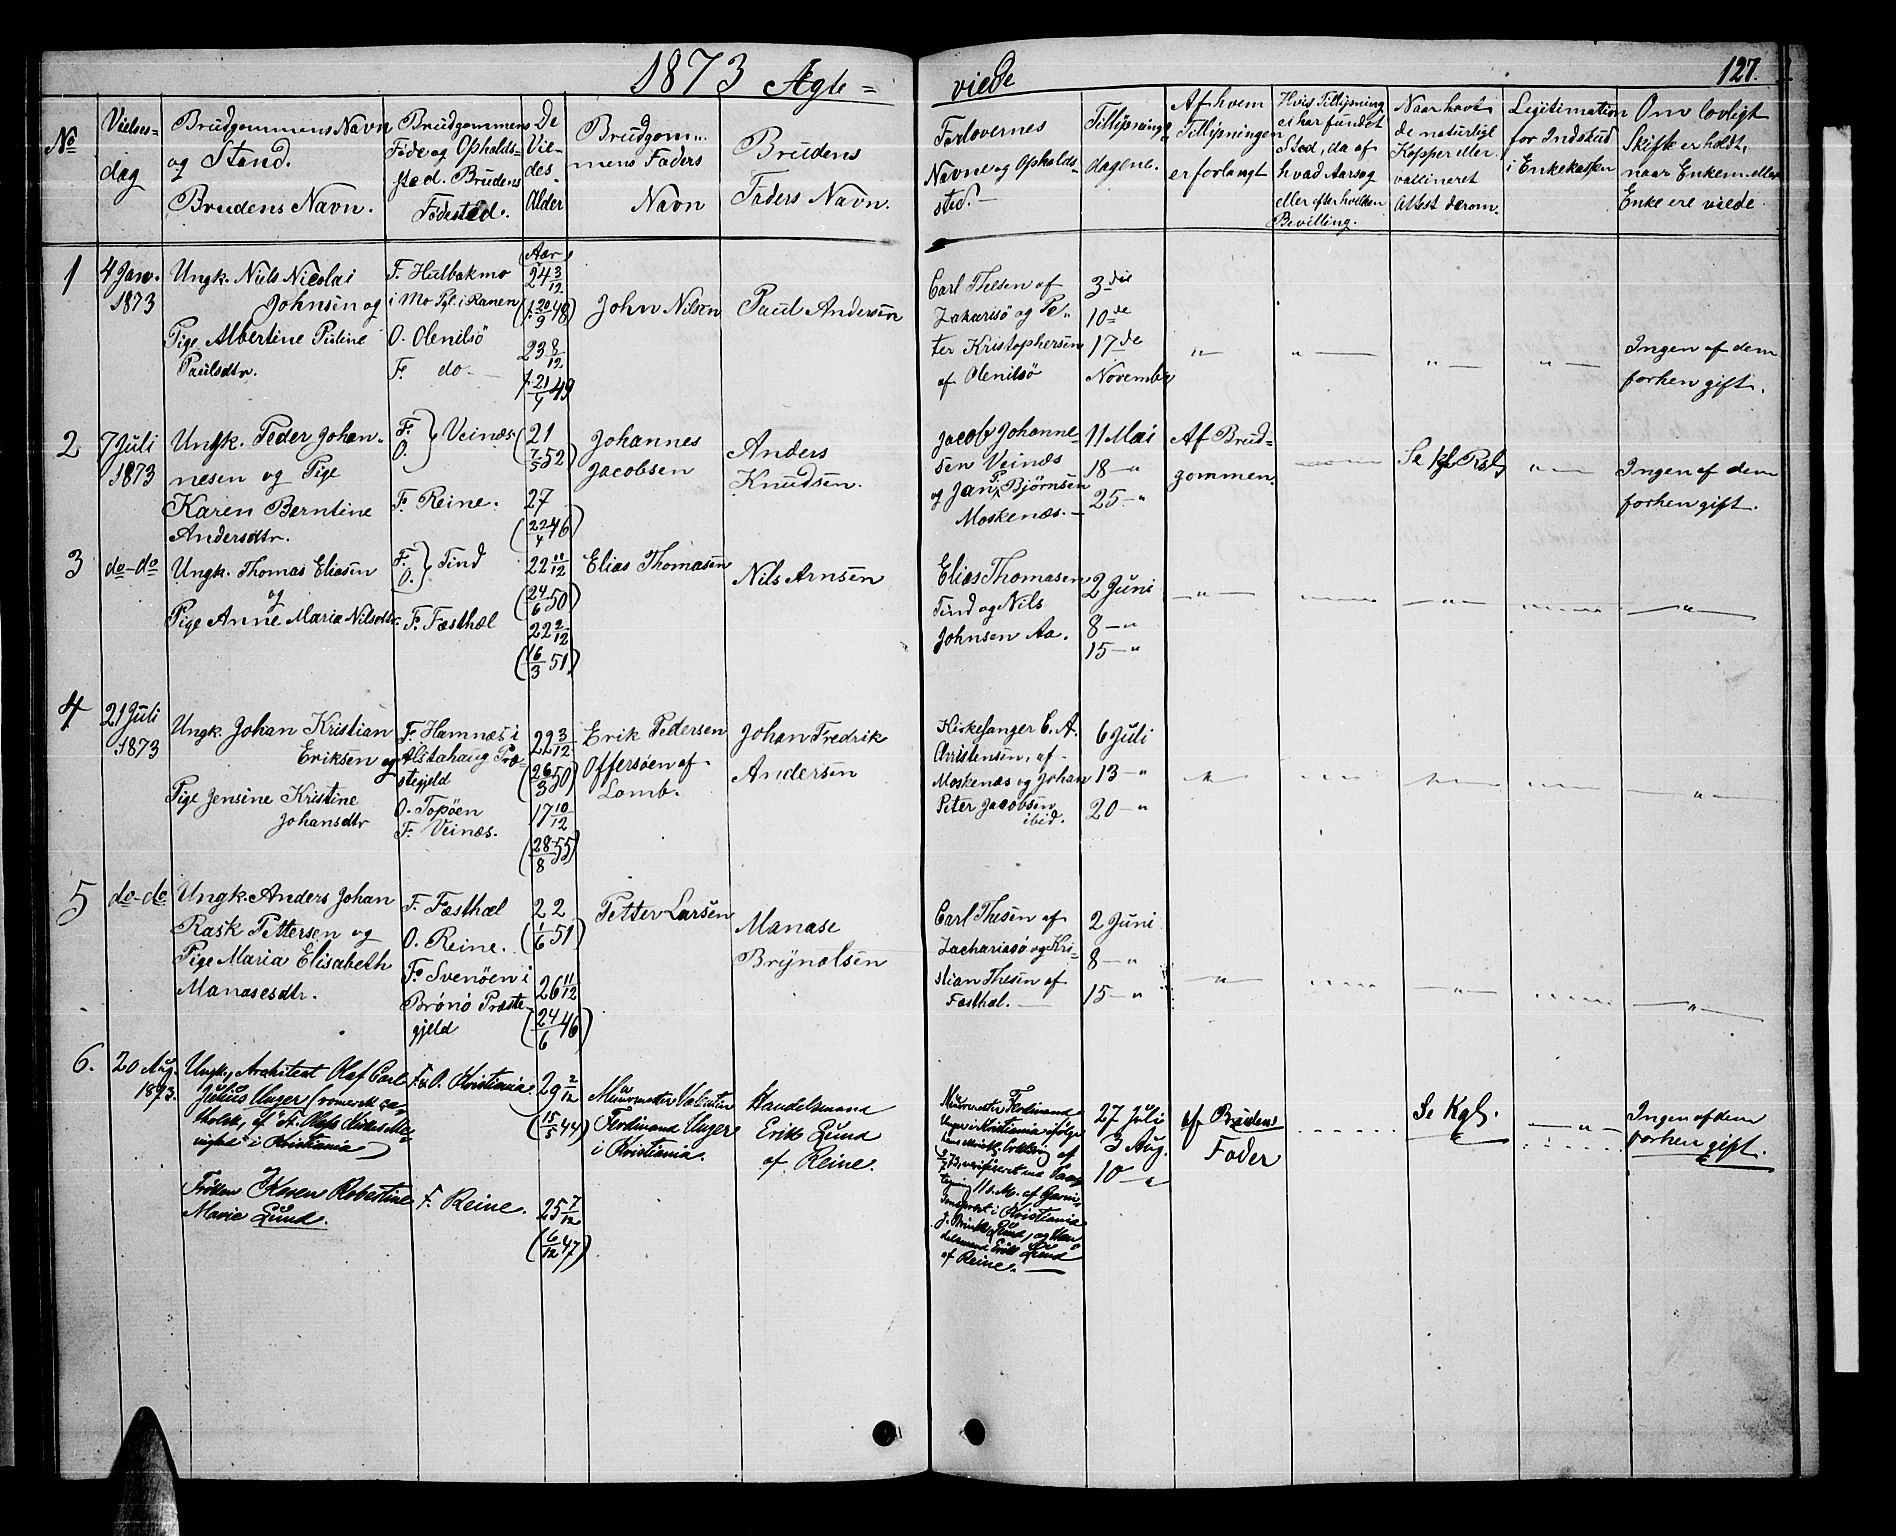 1873 Ægte=
viede
127.
No
Vielses-
dag
Brudgommens Navn
og Stand.
Brudens Navn.
Brudgommens
Føde og Opholds-
sted. Brudens
Fødested.
De
Vie-
des
Alder
Brudgom-
mens Faders
Navn
Brudens
Faders Navn.
Forlovernes
Navne og Opholds-
sted.
Tillysnings
dagene.
Af hvem
Tillysningen
er forlangt
Hvis Tillysning
ei har fundet
Sted, da af
hvad Aarsag
eller efter hvilken
Bevilling.
Naar havt
de naturlige
Kopper eller
vaccineret
Attest derom.
Legitimation
for Indskud
i Enkekassen
Om lovligt
Skifte er holdt,
naar Enkem. eller
Enke ere viede.
1
4 Janv.
1873
Ungk. Niels Nicolai
Johnsen og
Pige Albertine Puline
Paulsdtr.
F. Hulbakmo
i Mo Pgl. i Ranen
O. Olenilsö
F. do.
Aar
24 3/12
(f. 20/9 48)
23 8/12
f. 21/4 49
John Nilsen
Paul Andersen
Carl Thesen af
Zakarisö og Pe-
ter Kristophersen
af Olenilsö
3die
10de
17de
November
"
"
"
"
Ingen af dem
forhen gift.
2
7 Juli
1873
Ungk. Peder Johan-
nesen og Pige
Karen Berntine
Andersdtr.
F. } Veinæs.
O.
F. Reine.
21
(7/5 52)
27
(22/4 46)
Johannes
Jacobsen
Anders
Knudsen.
Jacob Johanne-
sen Veinæs
og Jan P. Björnsen
Moskenæs.
11 Mai
18 "
25 "
Af Brud-
gommen.
Se Kgl Rslg
"
Ingen af dem
forhen gift.
3
do - do
Ungk. Thomas Eliasen
og
Pige Anne Maria Nilsdtr.
F. } Tind
O.
F. Fæsthæl
22 11/12
(24/6 50)
22 2/12
(16/3 51)
Elias Thomasen
Nils Arnsen
Elias Thomasen
Tind og Nils
Johnsen Aa.
2 Juni
8 "
15 "
"
"
"
4
21 Juli
1873
Ungk. Johan Kristian
Eriksen og
Pige Jensine Kristine
Johansdtr
F. Hamnæs i
Alstahaug Præ-
stegjeld
O. Topöen
F. Veinæs.
22 3/12
(26/3 50)
17 10/12
(28/8 55)
Erik Pedersen
Offersöen af
Lomb.
Johan Fredrik
Andersen
Kirkesanger C. A.
Christensen, af
Moskenæs og Johan
Peter Jacobsen
ibid.
6 Juli
13 "
20 "
"
"
"
5
do - do
Ungk. Anders Johan
Rask Pettersen og
Pige Maria Elisabeth
Manasesdtr.
F. Fæsthæl
O. Reine.
F. Svenöen i
Brönö Præste-
gjeld
22
(1/6 51)
26 11/12
(24/6 46)
Petter Larsen
Manase
Brynolsen
Carl Thesen af
Zachariasö og Kri-
stian Thesen af
Fæsthæl.
2 Juni
8 "
15 "
"
"
"
6.
20 Aug.
1873.
Ungk., Architect Olaf Carl
Julius Unger (romersk ca-
tholsk, af St. Olafs Kirkes Me-
nighed i Kristiania)
Frøken Karen Robertine
Marie Lund.
F. & O. Kristiania.
F. Reine.
29 2/12
(15/5 44)
25 7/12
(6/12 47)
Muurmester Valentin
Ferdinand Unger
i Kristiania.
Handelsmand
Erik Lund
af Reine.
Muurmester Ferdinand
Unger i Kristiania ifølge
af
i Kristiania
Lund, og Han-
delsmand Erik Lund
af Reine.
27 Juli
3 Aug.
10 "
af Brudens
Fader
Se Kgl.
"
Ingen af dem
forhen gift.